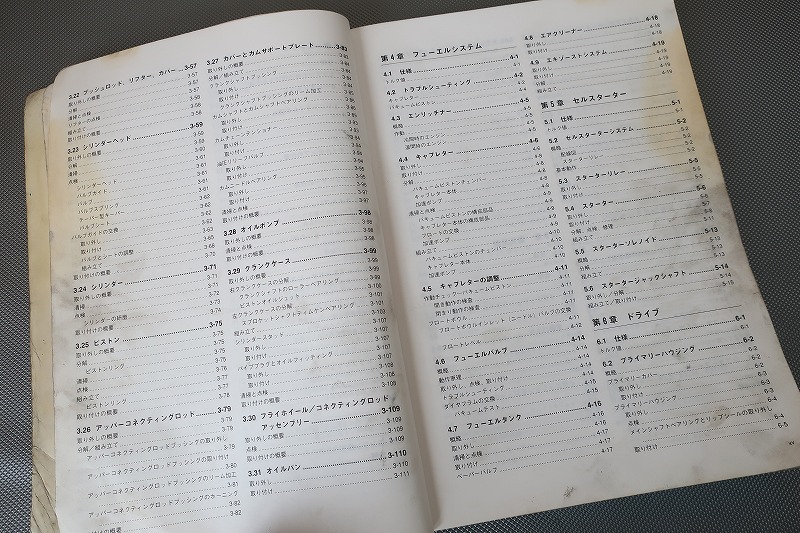 3.22 プッシュロッド、リフター、カバー 3-57
取り外しの概要 3-57
分解 3-57
清掃と点検 3-58
リフターの点検 3-58
組み立て 3-58
取り付けの概要 3-58
3.23 シリンダーヘッド 3-59
取り外しの概要 3-59
分解 3-60
清掃 3-61
点検 3-61
シリンダーヘッド 3-61
バルブガイド 3-61
バルブ 3-61
バルブスプリング 3-61
テーパー型キーパー 3-62
バルブシート 3-62
バルブガイドの交換 3-62
取り外し 3-62
取り付け 3-63
バルブとシートの調整 3-68
組み立て 3-70
取り付けの概要 3-70
3.24 シリンダー 3-71
取り外しの概要 3-71
清掃 3-71
点検 3-71
シリンダーの研磨 3-74
取り付けの概要 3-74
3.25 ピストン 3-75
取り外しの概要 3-75
分解 3-75
ピストンリング 3-75
清掃 3-76
点検 3-76
組み立て 3-77
ピストンリング 3-78
取り付けの概要 3-78
3.26 アッパーコネクティングロッド 3-79
取り外しの概要 3-79
分解/組み立て 3-79
アッパーコネクティングロッドブッシングの取り外し 3-79
アッパーコネクティングロッドブッシングの取り付け 3-80
アッパーコネクティングロッドブッシングのリーム加工 3-81
アッパーコネクティングロッドブッシングのホーニング 3-82
取り付けの概要 3-82
3.27 カバーとカムサポートプレート 3-83
取り外しの概要 3-83
分解/組み立て 3-84
クランクシャフトブッシング 3-84
取り外し 3-84
取り付け 3-84
クランクシャフトブッシングのリーム加工
カムシャフトとカムシャフトベアリング
取り外し
取り付け
カムチェーンテンショナー
取り外し
取り付け
油圧リリーフバルブ
取り外し
取り付け
カムニードルベアリング
取り外し
取り付け 3-97
清掃と点検 3-97
取り付けの概要 3-97
3.28 オイルポンプ 3-98
取り外しの概要 3-98
清掃と点検 3-98
取り付けの概要 3-98
3.29 クランクケース 3-99
取り外しの概要 3-99
右クランクケースの分解 3-99
クランクシャフトのローラーベアリング 3-100
ピストンオイルジェット 3-100
左クランクケースの分解 3-101
スプロケットシャフトティムケンベアリング 3-101
組み立て
シリンダースタッド
取り外し
取り付け
パイププラグとオイルフィッティング
取り外し
取り付け
清掃と点検
取り付けの概要
3.30 フライホイール/コネクティングロッド
アッセンブリー 3-109
取り外しの概要 3-109
点検 3-109
取り付けの概要 3-109
3.31 オイルパン 3-110
取り外し 3-110
取り付け 3-111
第4章 フューエルシステム
4.1 仕様 4-1
トルク値 4-1
4.2 トラブルシューティング 4-2
キャブレター 4-2
バキュームピストン 4-4
4.3 エンリッチナー 4-5
概略 4-5
作動 4-5
冷間時のエンジン 4-5
温間時のエンジン 4-5
4.4 キャブレター 4-6
取り外し 4-6
取り付け 4-7
分解 4-8
バキュームピストンチェンバー 4-8
キャブレター本体 4-8
加速ポンプ 4-9
清掃と点検 4-9
バキュームピストンの構成部品 4-9
キャブレター本体の構成部品 4-9
フロートの交換 4-10
加速ポンプ 4-10
組み立て 4-10
バキュームピストンのチェンバー 4-10
キャブレター本体 4-10
加速ポンプ 4-10
4.5 キャブレターの調整 4-11
作動チェック-バキュームピストン 4-11
開き動作の検査 4-11
閉まり動作の検査 4-11
フロートボウル 4-11
フロートボウルインレット（ニードル）バルブの交換 4-12
フロートレベル
4.6 フューエルバルブ 4-14
概略 4-14
動作原理 4-14
取り外し、点検、取り付け 4-14
トラブルシューティング 4-14
ダイヤフラムの交換 4-15
バキュームテスト 4-15
4.7 フューエルタンク 4-16
概略 4-16
取り外し 4-16
清掃と点検 4-16
取り付け 4-17
ベーパーバルブ 4-17
4.8 エアクリーナー 4-18
取り外し 4-18
取り付け 4-18
4.9 エキゾーストシステム 4-19
取り外し 4-19
分解 4-19
組み立て 4-19
第5章 セルスターター
5.1 仕様 5-1
トルク値 5-1
5.2 セルスターターシステム 5-2
概略 5-2
配線図 5-2
スターターリレー 5-2
基本動作 5-2
5.3 スターターリレー 5-5
取り外し 5-5
取り付け 5-5
5.4 スターター 5-6
取り外し 5-6
取り付け
分解、点検、修理
組み立て
5.5 スターターソレノイド 5-13
概略 5-13
分解 5-13
組み立て 5-13
5.6 スタータージャックシャフト 5-14
取り外し/分解 5-14
組み立て/取り付け 5-15
第6章 ドライブ
6.1 仕様 6-1
トルク値 6-1
6.2 プライマリーハウジング 6-2
プライマリーカバー 6-2
取り外し 6-2
取り付け 6-3
プライマリーハウジング 6-3
取り外し 6-3
点検 6-4
メインシャフトベアリングとリップシールの取り外し
取り付け 6-5
xv